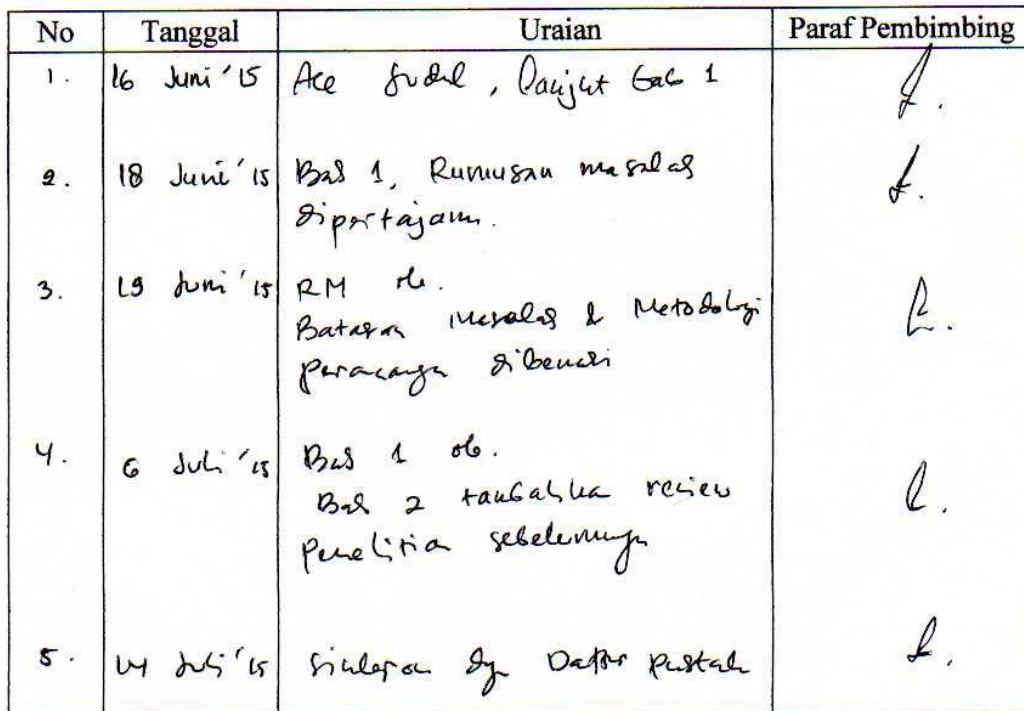 No Tanggal Uraian Paraf Pembimbing
1. 16 Juni '15 Acc Judul, Lanjut Bab 1
2. 18 Juni '15 Bab 1, Rumusan masalah
dipertajam.
3. 19 Juni '15 RM ok.
Batasan Masalah & Metodologi
perancangan dibenahi
4. 6 Juli '15 Bab 1 ok.
Bab 2 tambahkan review
penelitian sebelumnya
5. 14 Juli '15 sinkron dgn Daftar pustak